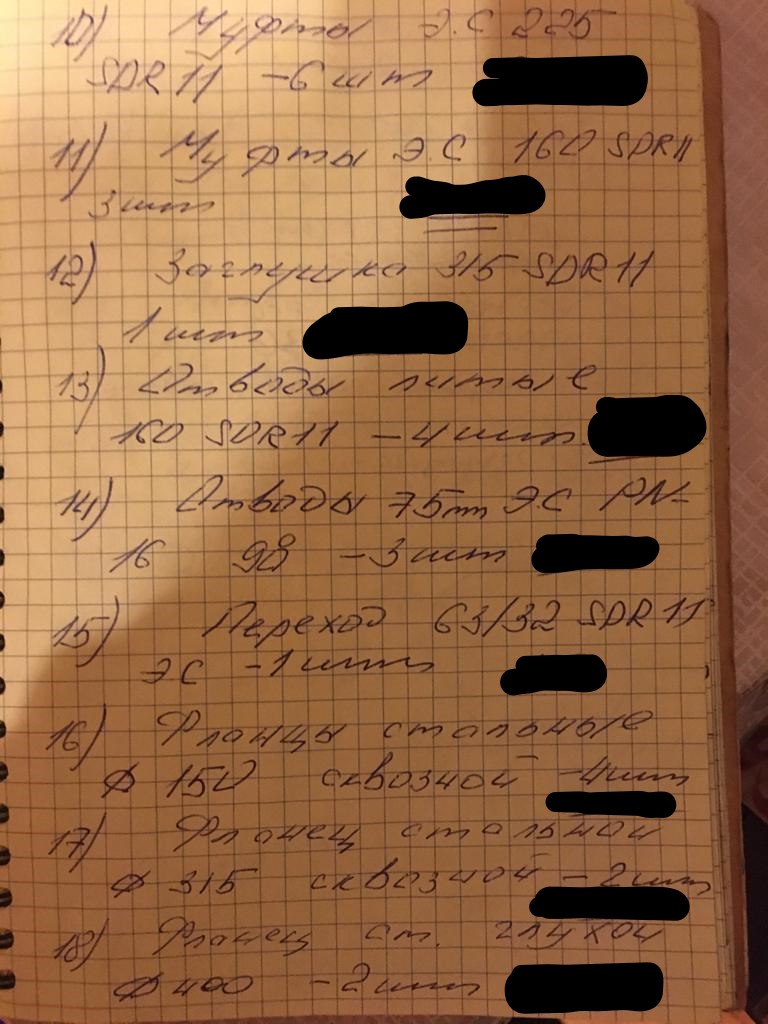 10) Муфты Э.С 225
SDR 11 -6 шт
11) Муфты Э.С 160 SDR11
3 шт
12) Заглушка 315 SDR 11
1 шт
13) Отводы литые
160 SDR 11 - 4 шт.
14) Отводы 75мм ЭС PN-
16 90 - 3 шт
15) Переход 63/32 SDR 11
ЭС - 1 шт
16) Фланцы стальные
ф 150 сквозной - 4 шт
17) Фланец стальной
ф 315 сквозной - 2 шт
18) Фланец ст. глухой
ф 400 - 2 шт